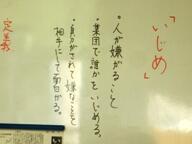 「いじめ」
定義
・人が嫌がること
・集団で誰かをいじめる。
・自分がされて嫌なことを
相手にして面白がる。